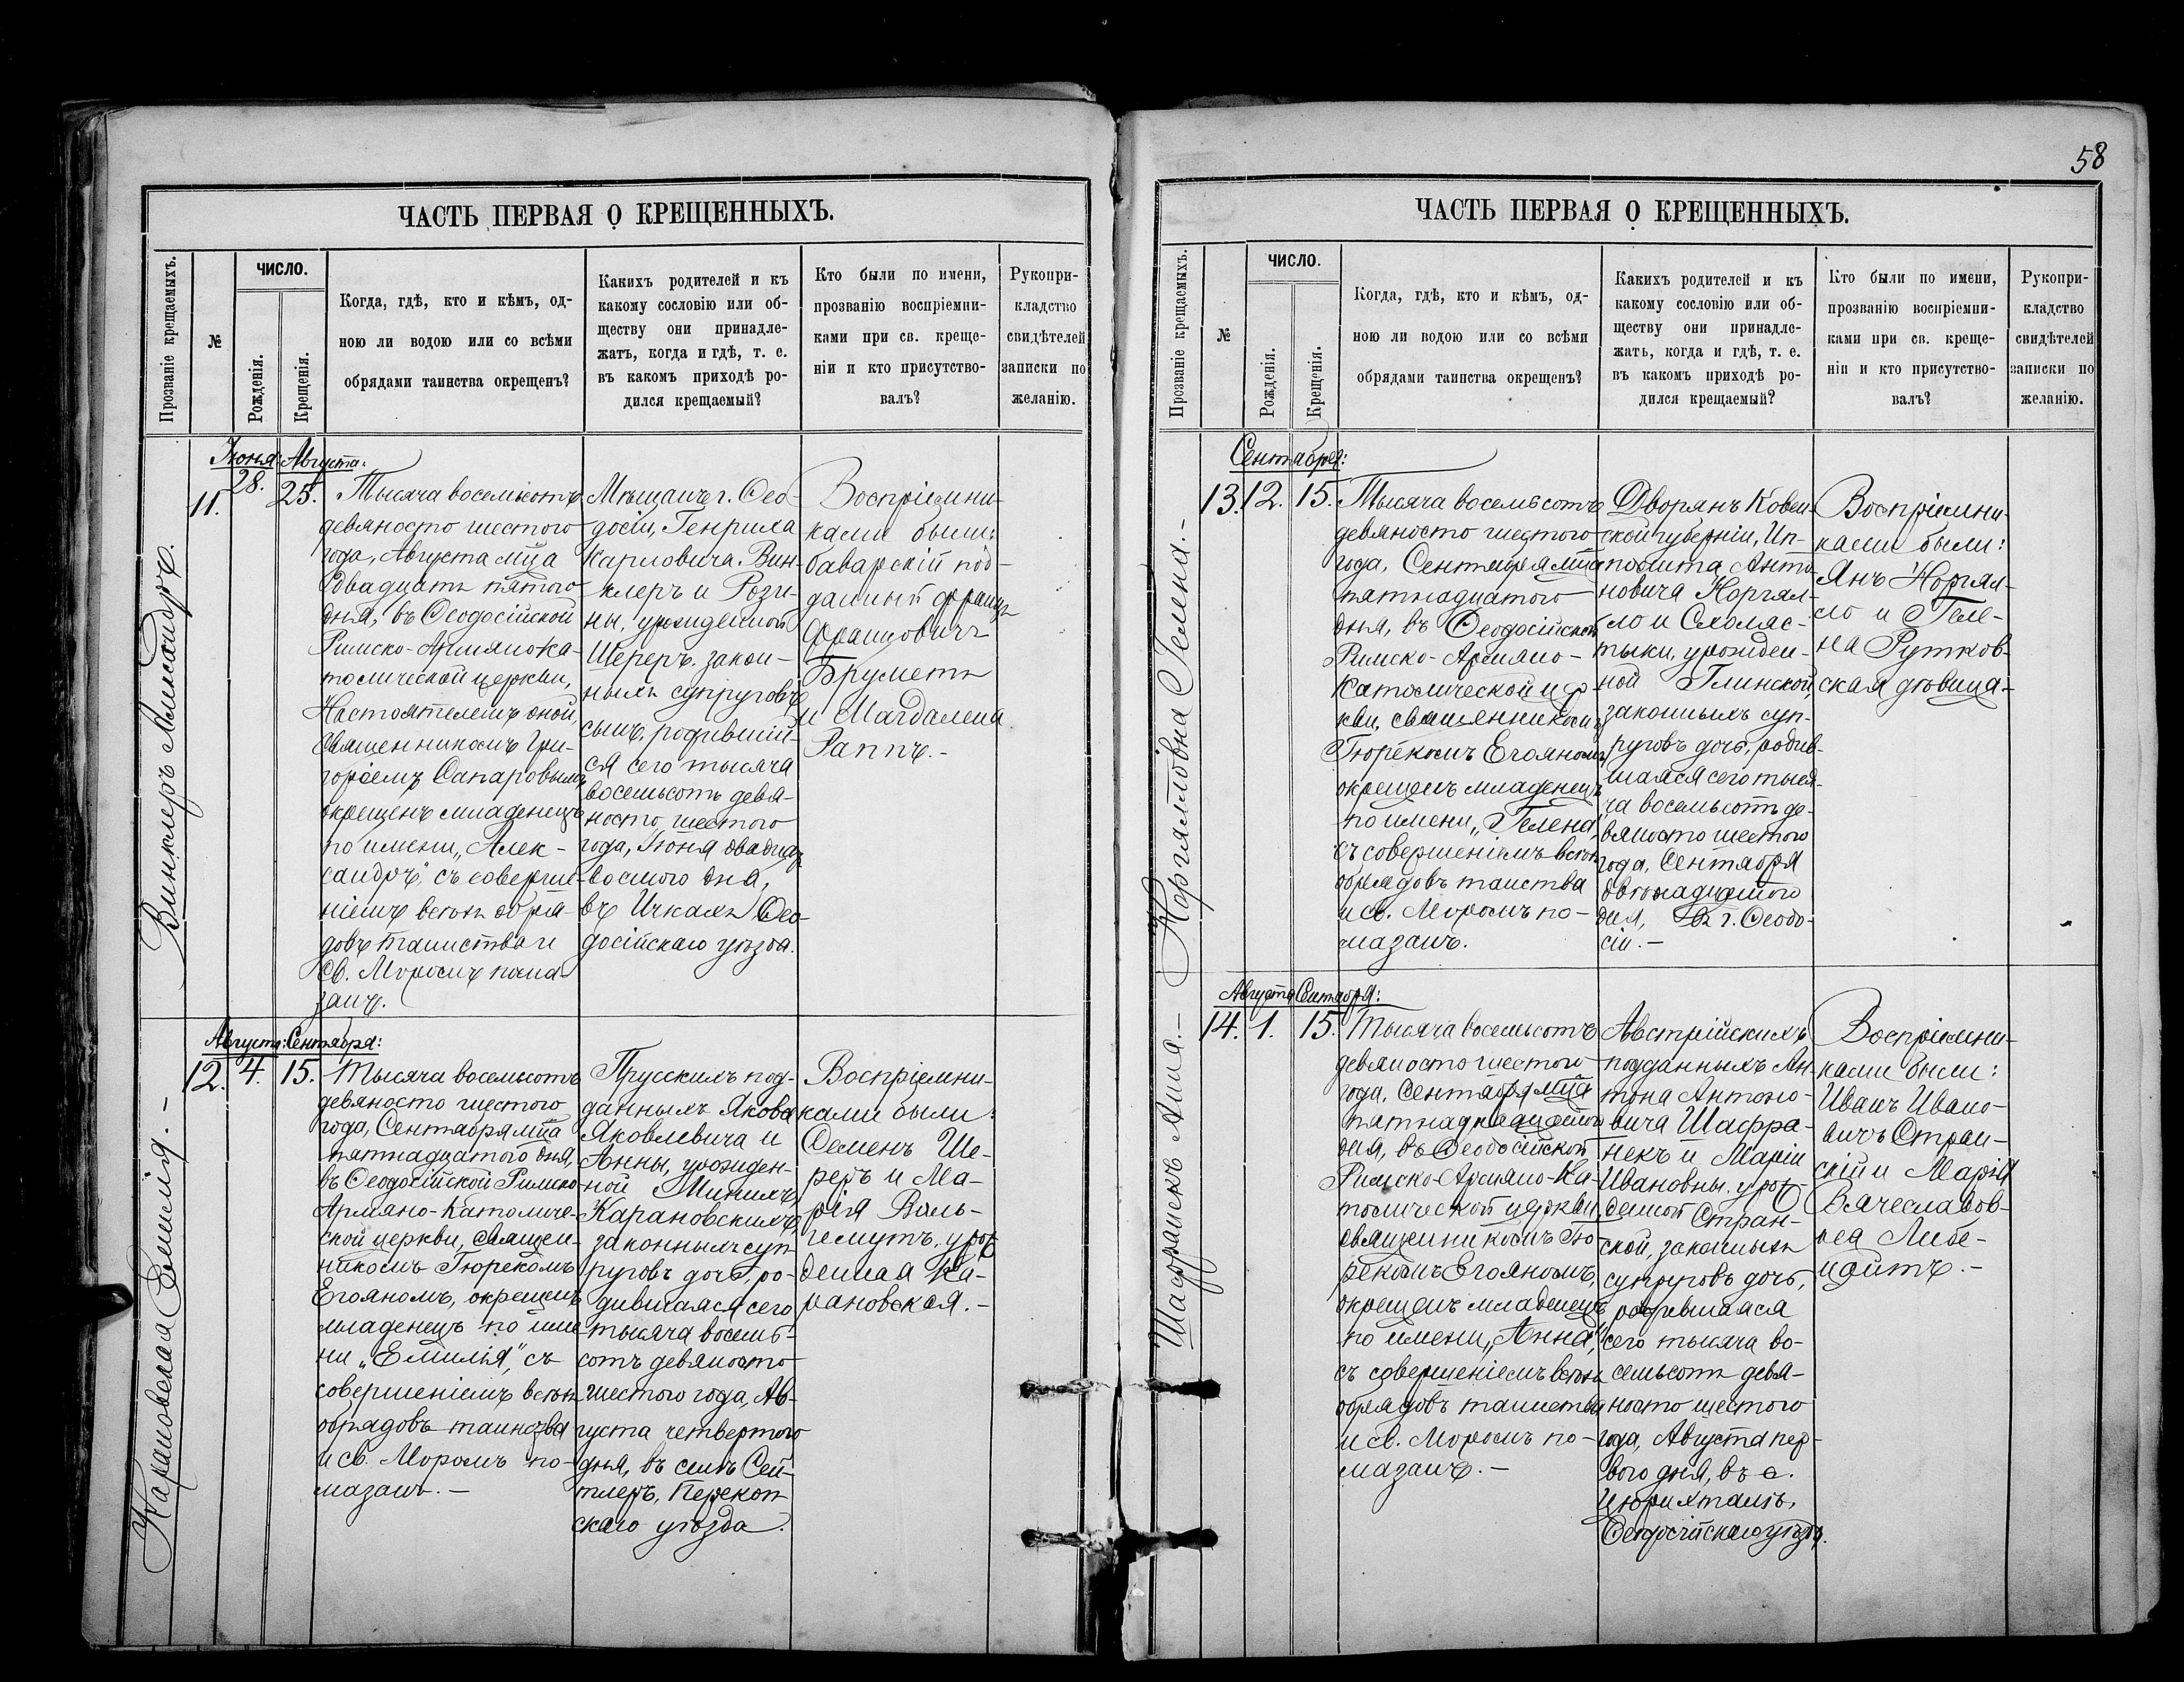 58
ЧАСТЬ ПЕРВАЯ О КРЕЩЕННЫХЪ.
Прозваніе крещаемыхъ.
№
ЧИСЛО.
Рожденія.
Крещенія.
Когда, гдѣ, кто и кѣмъ, од-
ною ли водою или со всѣми
обрядами таинства окрещенъ?
Какихъ родителей и къ
какому сословію или об-
ществу они принадле-
жатъ, когда и гдѣ, т. е.
въ какомъ приходѣ ро-
дился крещаемый?
Кто были по имени,
прозванію воспріемни-
ками при св. креще-
ніи и кто присутство-
валъ?
Рукопри-
кладство
свидѣтелей
записки по
желанію.
Винклеръ Александръ.
Іюня Августа:
11.
28.
25.
Тысяча восемьсотъ
девяносто шестого
года, Августа мца
двадцать пятого
дня, въ Ѳеодосійской
Римско-Армянока-
толической церкви,
Настоятелемъ оной,
Священникомъ Гри-
горіемъ Сапаровымъ
окрещенъ младенецъ
по имени „Алек-
сандръ," съ соверше-
ніемъ всѣхъ обря-
довъ таинства и
Св. Мѵромъ пома-
занъ.
Мѣщанъ г. Ѳео-
досіи, Генриха
Карловича Вин-
клеръ и Рози-
ны, урожденной
Шереръ. закон-
ныхъ супруговъ
сынъ, родившій-
ся сего тысяча
восемьсотъ девя-
носто шестого
года, Іюня двадцать
восмого дня,
въ Ичкахъ Ѳео-
досійскаго уѣзда.
Воспріемни-
ками были:
баварскій под-
данный Францъ
Францовичъ
Бруметъ
и Магдалена
Раппъ.-
Карановская Емилія.-
Августа: Сентября:
12.
4.
15.
Тысяча восемьсотъ
девяносто шестого
года, Сентября мца
пятнадцатого дня,
въ Ѳеодосійской Римско-
Армяно-Католиче-
ской церкви, Священ-
никомъ Гюрекомъ
Егояномъ, окрещенъ
младенецъ по име-
ни „Емилія," съ
совершеніемъ всѣхъ
обрядовъ таинства
и св. Мѵромъ по-
мазанъ.-
Прусскихъ под-
данныхъ Якова
Яковлевича и
Анны, урожден-
ной Минихъ
Карановскихъ,
законныхъ суп-
руговъ дочь, ро-
дившаяся сего
тысяча восемь-
сотъ девяносто
шестого года, Ав-
густа четвертого
дня, въ селѣ Сей-
тлеръ, Перекоп-
скаго уѣзда.
Воспріемни-
ками были:
Семенъ Ше-
реръ и Ма-
рія Валь-
гемутъ, урож-
денная Ка-
рановская.-
ЧАСТЬ ПЕРВАЯ О КРЕЩЕННЫХЪ.
Прозваніе крещаемыхъ.
№
ЧИСЛО.
Рожденія.
Крещенія.
Когда, гдѣ, кто и кѣмъ, од-
ною ли водою или со всѣми
обрядами таинства окрещенъ?
Какихъ родителей и къ
какому сословію или об-
ществу они принадле-
жатъ, когда и гдѣ, т. е.
въ какомъ приходѣ ро-
дился крещаемый?
Кто были по имени,
прозванію воспріемни-
ками при св. креще-
ніи и кто присутство-
валъ?
Рукопри-
кладство
свидѣтелей
записки по
желанію.
Гелена.-
Сентября:
13.
12.
15.
Тысяча восемьсотъ
девяносто шестого
года, Сентября мца
пятнадцатого
дня, въ Ѳеодосійской
Римско-Армяно-
Католической цер-
кви, священникомъ
Гюрекомъ Егояномъ
окрещенъ младенецъ
по имени „Гелена,"
съ совершеніемъ всѣхъ
обрядовъ таинства
и св. Мѵромъ по-
мазанъ.
Дворянъ Ковен-
ской губерніи, Ип-
полита Анто-
новича Норгял-
ло и Схоляс-
тыки, урожден-
ной Глинской
законныхъ суп-
руговъ дочь, родив-
шаяся сего тыся-
ча восемьсотъ де-
вяносто шестого
года, Сентября
двѣнадцатого
дня, въ г. Ѳеодо-
сіи.-
Воспріемни-
ками были:
Янъ Норгял-
ло и Геле-
на Рутков-
ская дѣвица-
Шафранекъ Анна.-
Августа Сентября:
14.
1.
15.
Тысяча восемьсотъ
девяносто шестого
года, Сентября мца
пятнадцатого
дня, въ Ѳеодосійской
Римско-Армяно-Ка-
толической церкви,
священникомъ Гю-
рекомъ Егояномъ,
окрещенъ младенецъ
по имени „Анна",
съ совершеніемъ всѣхъ
обрядовъ таинства
и св. Мѵромъ по-
мазанъ.-
Австрійскихъ
подданныхъ Ан-
тона Антоно-
вича Шафра-
некъ и Маріи
Ивановны, урож-
денной Стран-
ской, законныхъ
супруговъ дочь,
родившаяся
сего тысяча во-
семьсотъ девя-
носто шестого
года, Августа пер-
вого дня, въ с.
Цюрихталь,
Ѳеодосійскаго уѣзда.
Воспріемни-
ками были:
Иванъ Ивано-
вичъ Стран-
скій и Марія
Вячеславов-
на Либе-
цайтъ.-